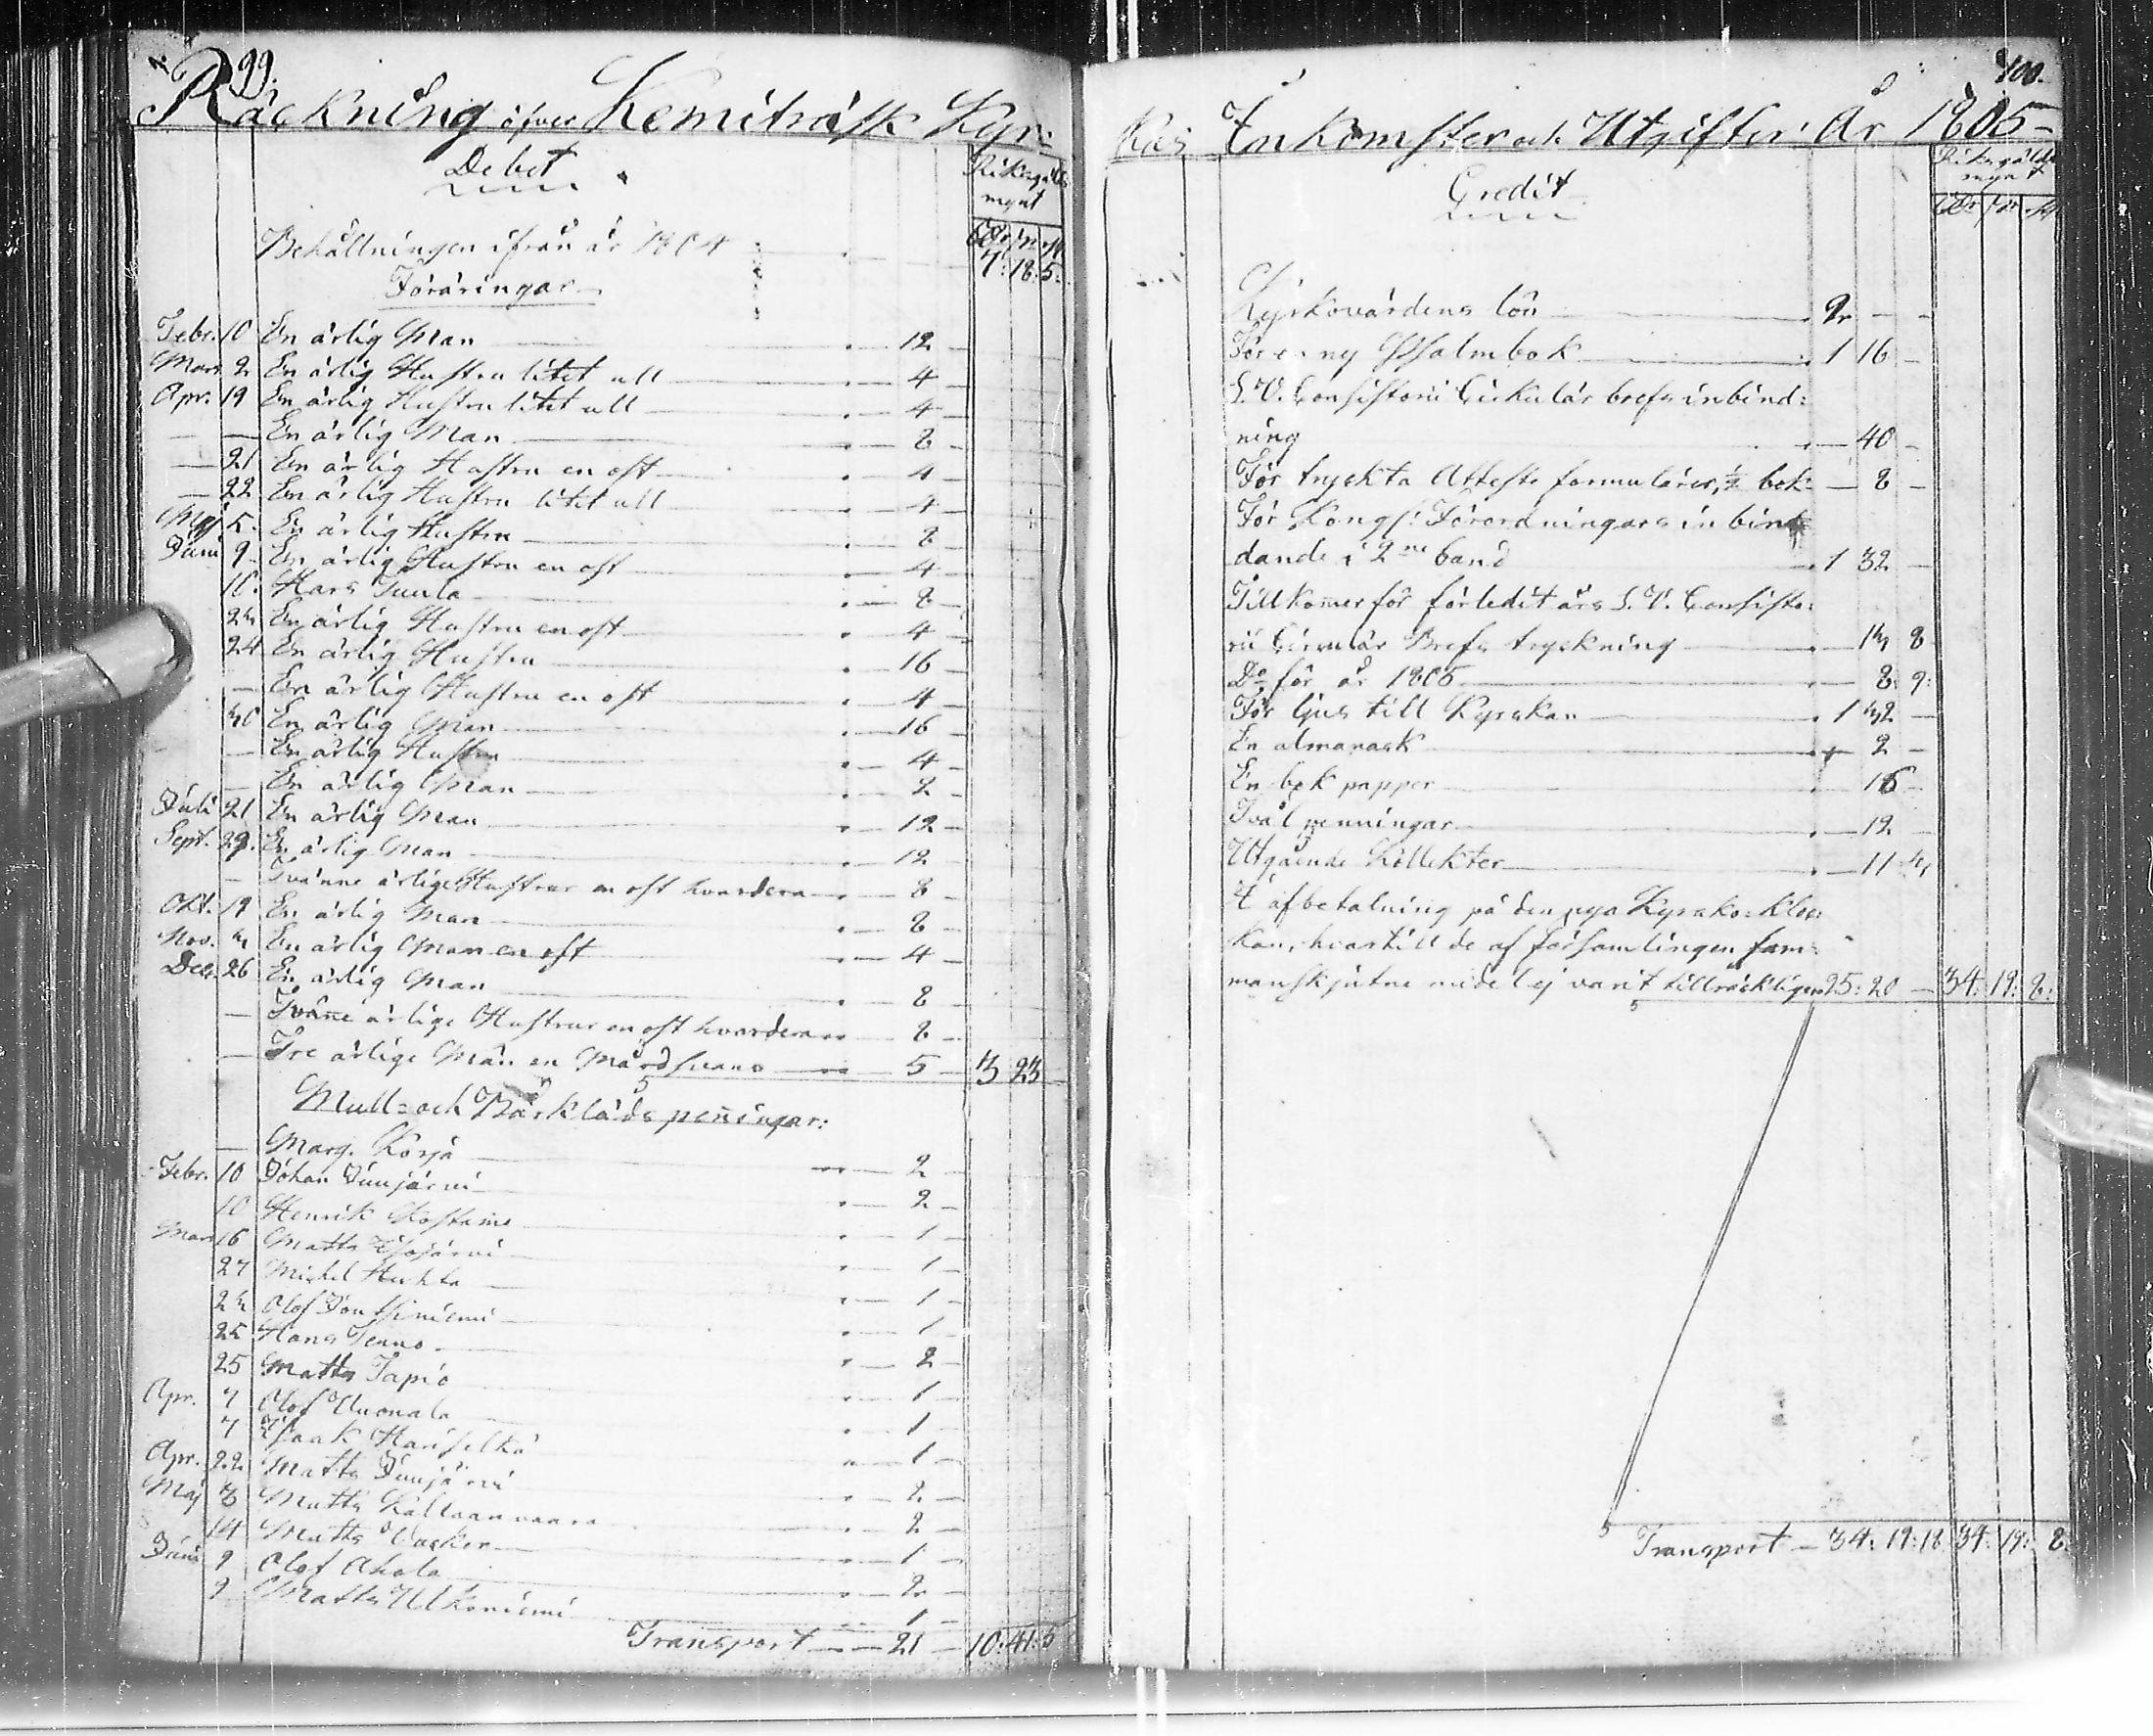 99.
Räckning öfver Kemiträsk Kyr:
Debet
Riksgälds
mynt
Behållningen ifrån år 1804 7: 18: 5:
Föräringar
Febr. 10 En ärlig Man 12
Mars 2 En ärlig Hustru litet ull 4
Apr. 19 En ärlig Hustru litet ull 4
— — En ärlig Man 8
— 21 En ärlig Hustru en ost 4
— 22 En ärlig Hustru litet ull 4
Maj 5. En ärlig Hustru 8
Juni 9 En ärlig Hustru en ost 4
10. Hans Juula 8
23 En ärlig Hustru en ost 4
24 En ärlig Hustru 16
— En ärlig Hustru en ost 4
30 En ärlig Man 16
— En ärlig Hustru 4
— En ärlig Man 2
Juli 21 En ärlig Man 12
Sept. 29. En ärlig Man 12
— Tvänne ärlige Hustrur en ost hvardera 8
Okt. 19 En ärlig Man 8
Nov. 3 En ärlig Man en ost 4
Dec. 26 En ärlig Man 8
— Tväne ärlige Hustrur en ost hvardera 8
— Tre ärlige Män en Mårdsvans 5 3 23
Mull= och Bårkläds peningar:
— Marg. Korja 2
Febr. 10 Johan Juujärvi 2
10 Henrik Kostamo 1
Mars 16 Matts Isojärvi 1
27 Michel Huhta 1
23 Olof Joutsiniemi 1
25 Hans Tenno 2
25 Matts Tapio 1
Apr. 7 Olof Auonala 1
7 Isaak Hanselkä 1
Apr. 22 Matts Juujärvi 2
Maj 8 Matts Kallaanvaara 2
14 Matts Vasker 1
Juni 9 Olof Ahola 2
9 Matts Ulkuniemi 1
Transport — 21 — 10: 41: 5
100.
kas Inkomster och Utgifter År 1805
Credit
Riksgälds
mynt
Kyrkovärdens lön 2 — —
För en ny Psalmbok 1 16 —
S. V. Consistorii Cirkulär brefs inbind:
ning — 40 —
För tryckta Attests formulärer, ½ bok — 8 —
För Kongl: Förordningars inbin
dande i 2ne band 1 32 —
Tillkommer för förledit års S. V. Consisto:
rii Cirkulär Brefs tryckning — 13 8
Do för år 1805 — 8: 9:
För ljus till Kyrckan 1 32 —
En almanack — 2 —
En bok papper 16 —
Tvål penningar — 12
Utgående Kollekter — 11 3
I afbetalning på den nya Kyrcko= kloc:
kan, hvartill de af församlingen sam:
manskjutne medel ej varit tillräckliga 25: 20 — 34: 19: 8:
Transport — 34: 19: 18 34: 19: 8